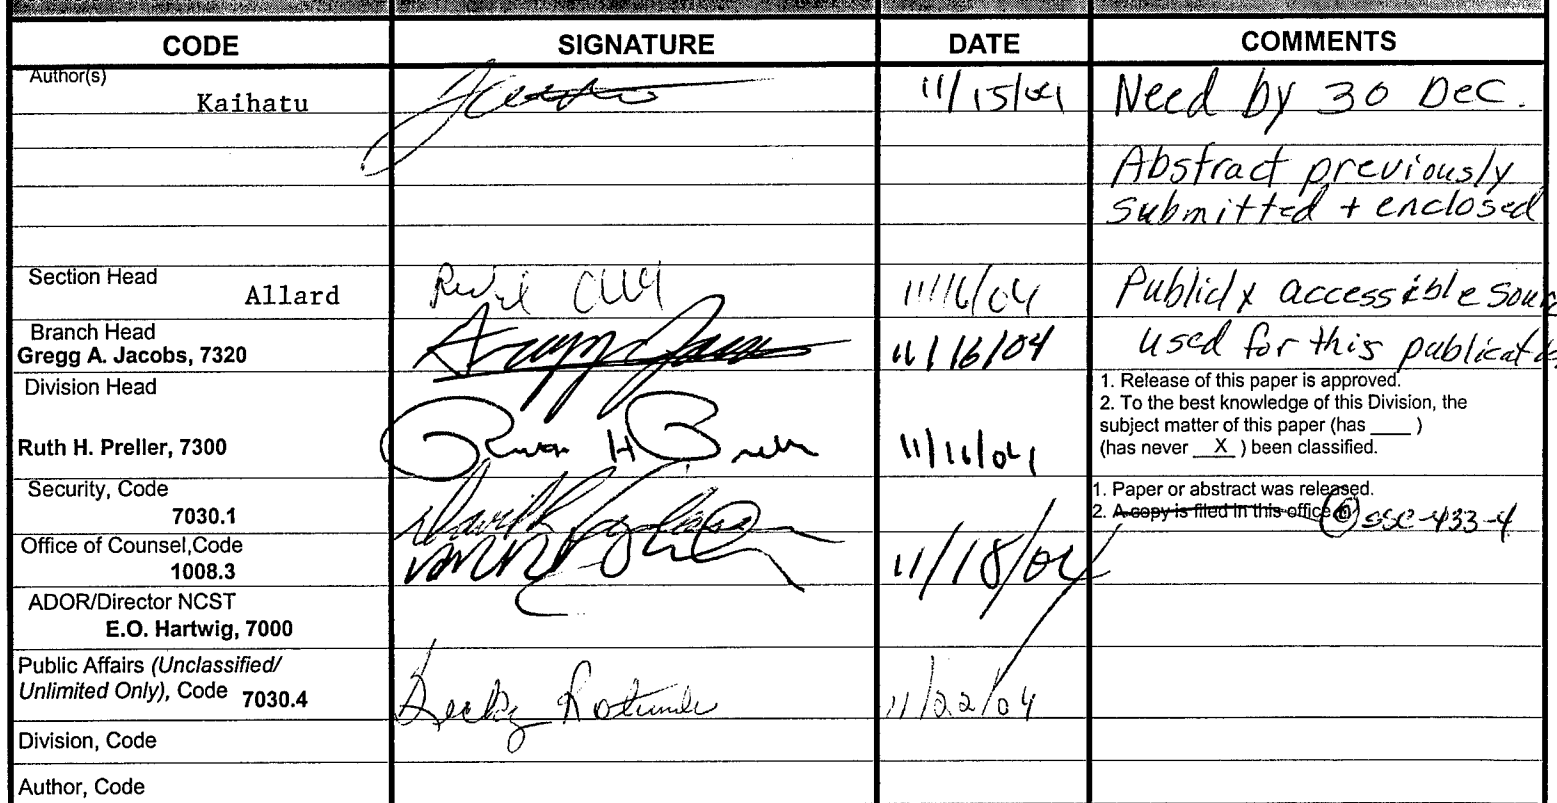 CODE SIGNATURE DATE COMMENTS
Author(s)
Kaihatu 11/15/04 Need by 30 Dec.
Abstract previously
submitted + enclosed
Section Head
Allard 11/16/04 Publicly accessible
Branch Head
Gregg A. Jacobs, 7320 11/16/04 used for this
Division Head
1. Release of this paper is approved.
2. To the best knowledge of this Division, the
subject matter of this paper (has ____ )
Ruth H. Preller, 7300 Ruth H 11/16/04 (has never __X__ ) been classified.
Security, Code
7030.1
1. Paper or abstract was released.
2. A copy is filed in this office SSC-433-4
Office of Counsel,Code
1008.3 11/18/04
ADOR/Director NCST
E.O. Hartwig, 7000
Public Affairs (Unclassified/
Unlimited Only), Code 7030.4 11/22/04
Division, Code
Author, Code